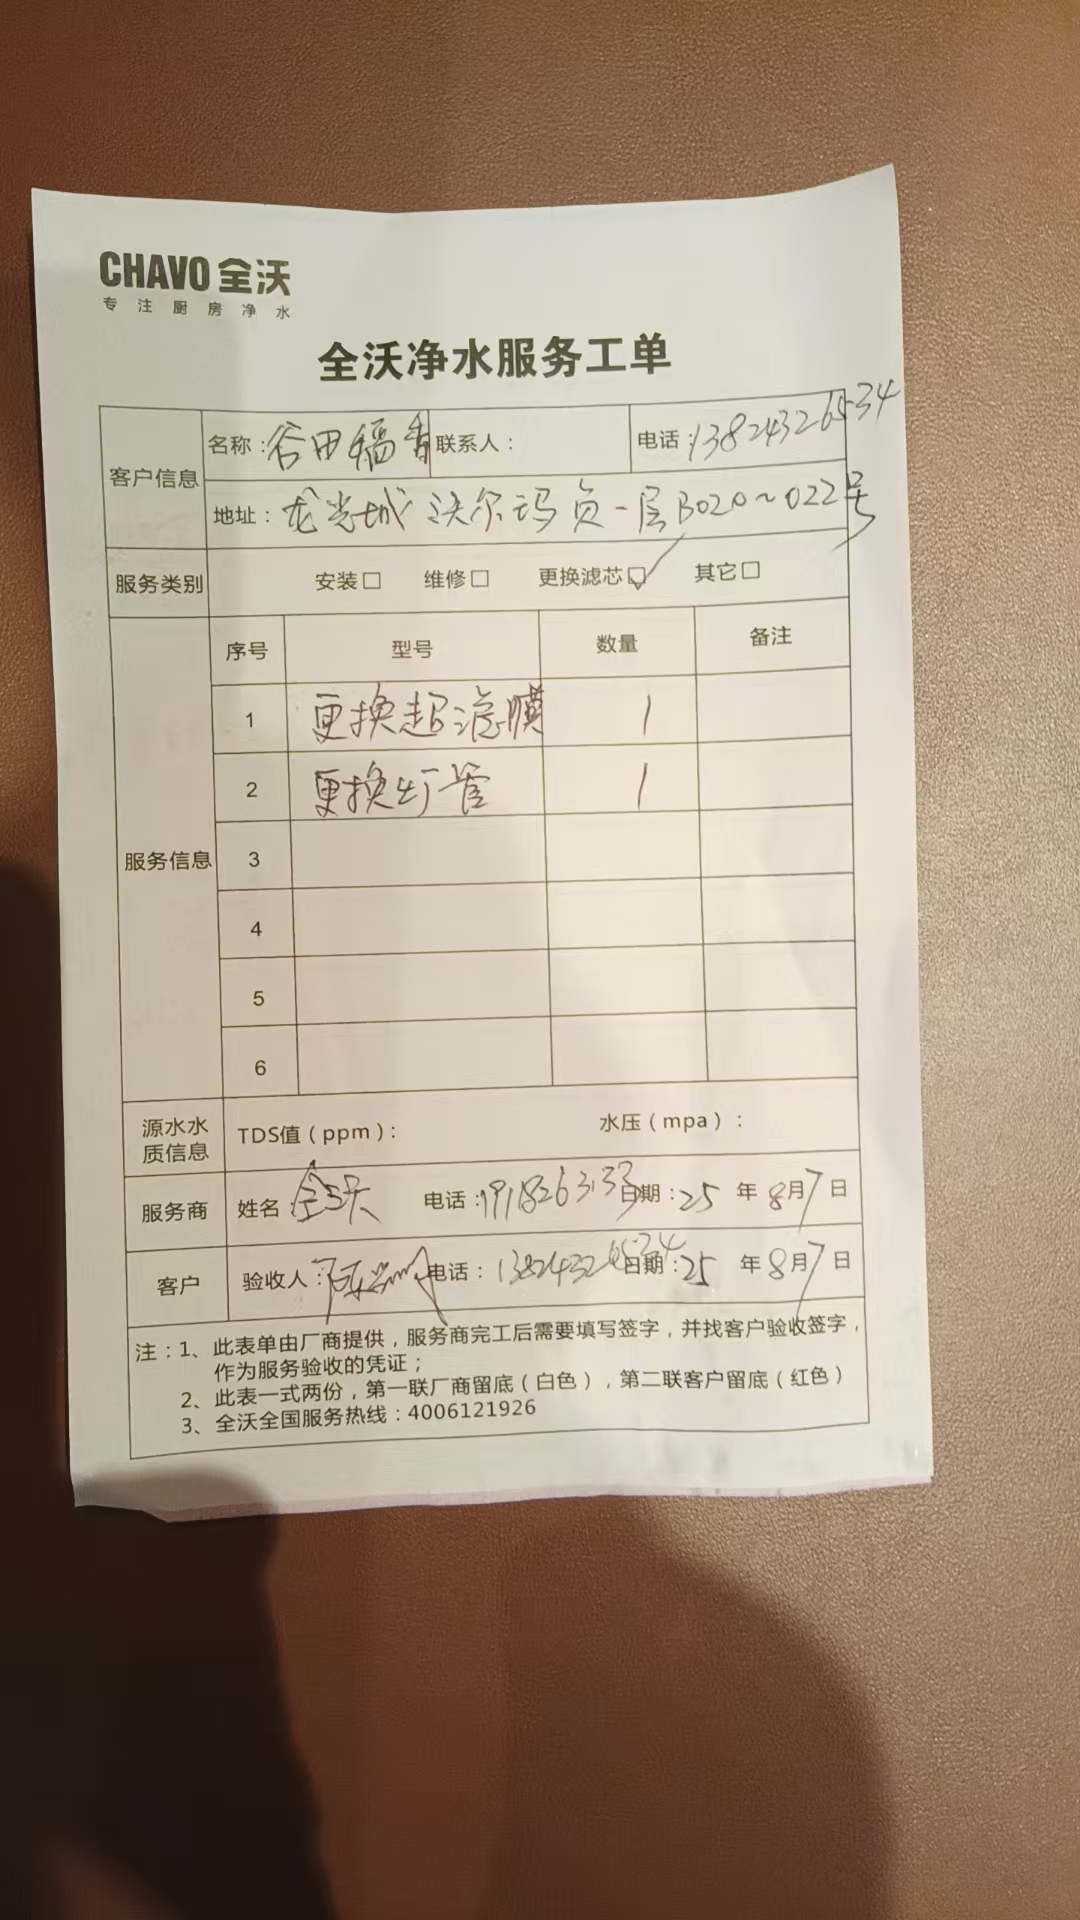 CHAVO 全沃
专注厨房净水
全沃净水服务工单
客户信息 名称：谷田稻香 联系人： 电话：13824326534
地址：龙光城沃尔玛负一层B020~022号
服务类别 安装□ 维修□ 更换滤芯☑ 其它□
服务信息 序号 型号 数量 备注
1 更换超滤膜 1
2 更换 管 1
3
4
5
6
源水水质信息 TDS值（ppm）： 水压（mpa）：
服务商 姓名： 电话： 日期：25 年 8月7日
客户 验收人： 电话：13824326534 日期：25 年 8月7日
注：1、此表单由厂商提供，服务商完工后需要填写签字，并找客户验收签字，
作为服务验收的凭证；
2、此表一式两份，第一联厂商留底（白色），第二联客户留底（红色）
3、全沃全国服务热线：4006121926